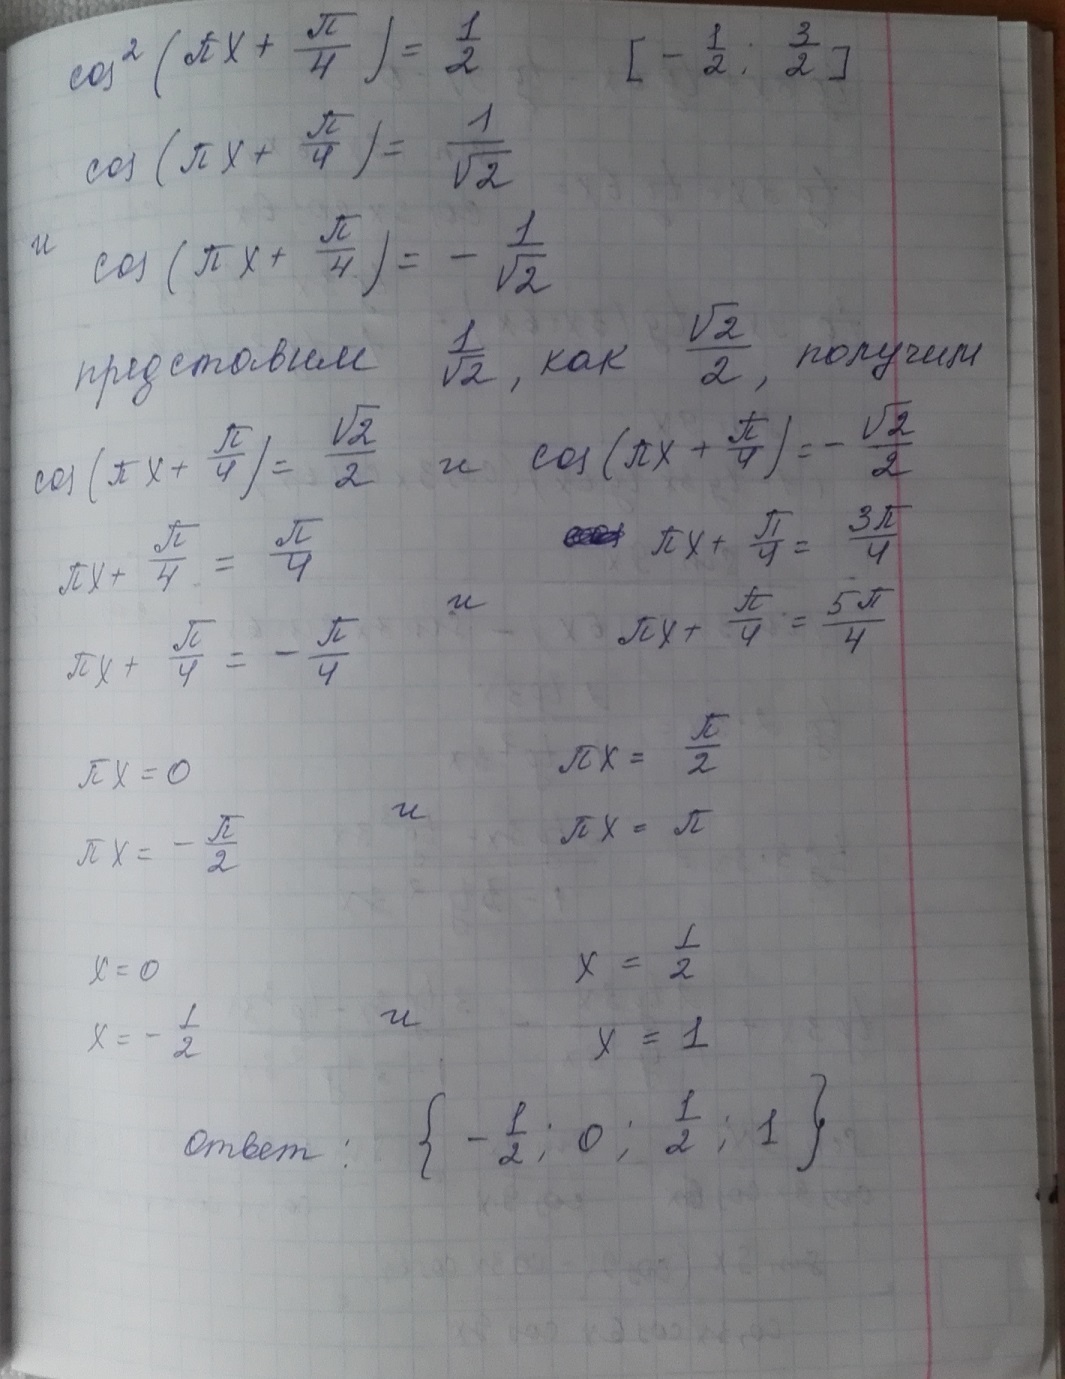 cos² (πx + π/4) = 1/2 [-1/2; 3/2]
cos (πx + π/4) = 1/√2
и cos (πx + π/4) = - 1/√2
представим 1/√2, как √2/2, получим
cos(πx + π/4) = √2/2 и cos(πx + π/4) = - √2/2
πx + π/4 = π/4 πx + π/4 = 3π/4
и
πx + π/4 = - π/4 πx + π/4 = 5π/4
πx = 0 πx = π/2
и
πx = - π/2 πx = π
x = 0 x = 1/2
и
x = - 1/2 x = 1
ответ: {- 1/2; 0; 1/2; 1}